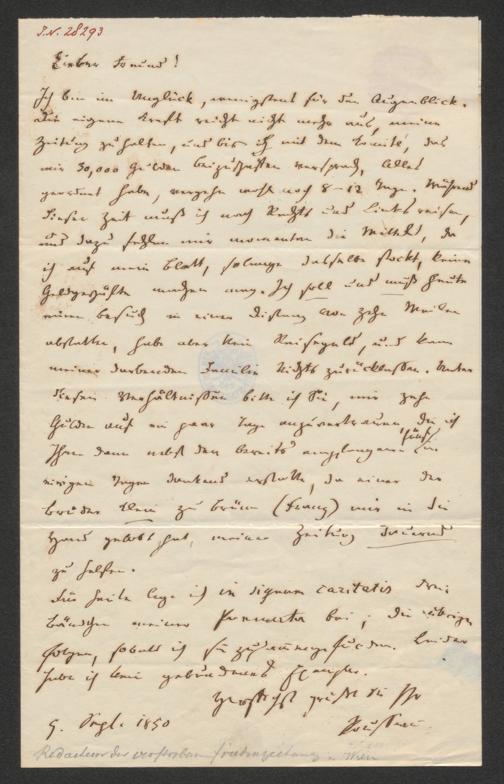 J.N. 28293
Lieber Freund!
Ich bin im Unglück, wenigstens für den Augenblick.
Die eigene Kraft reicht nicht mehr aus, meine
Zeitung zu halten, und bis ich mit dem Comité, das
mir 30,000 Gulden beizuschaffen versprach, Alles
geordnet habe, vergehn wohl noch 8–12 Tage. Während
dieser Zeit muß ich nach Rechts und Links reisen,
und dazu fehlen mir momentan die Mittel, da
ich auf mein Blatt, solange dasselbe stockt, keine
Geldgeschäfte machen mag. Ich soll und muß heute
einen Besuch in einer Distanz von zehn Meilen
abstatten, habe aber kein Reisegeld, und kann
meiner darbenden Familie Nichts zurücklassen. Unter
diesen Verhältnissen bitte ich Sie, mir zehn
Gulden auf ein paar Tage anzuvertrauen, die ich
Ihnen dann nebst den bereits empfangenen fünf in
einigen Tagen dankend erstatte, da einer der
Brüder Klein zu Brünn (Franz) mir in die
Hand gelobt hat, meiner Zeitung dauernd
zu helfen.
Für heute lege ich in signum caritatis drei
Bändchen meiner bei; die übrigen
folgen, sobald ich sie Leider
habe ich kein gebundenes Exemplar.
Herzlichst grüßt Sie Ihr
9. Sept. 1850
Redacteur der verstorbenen Friedenszeitung in Wien